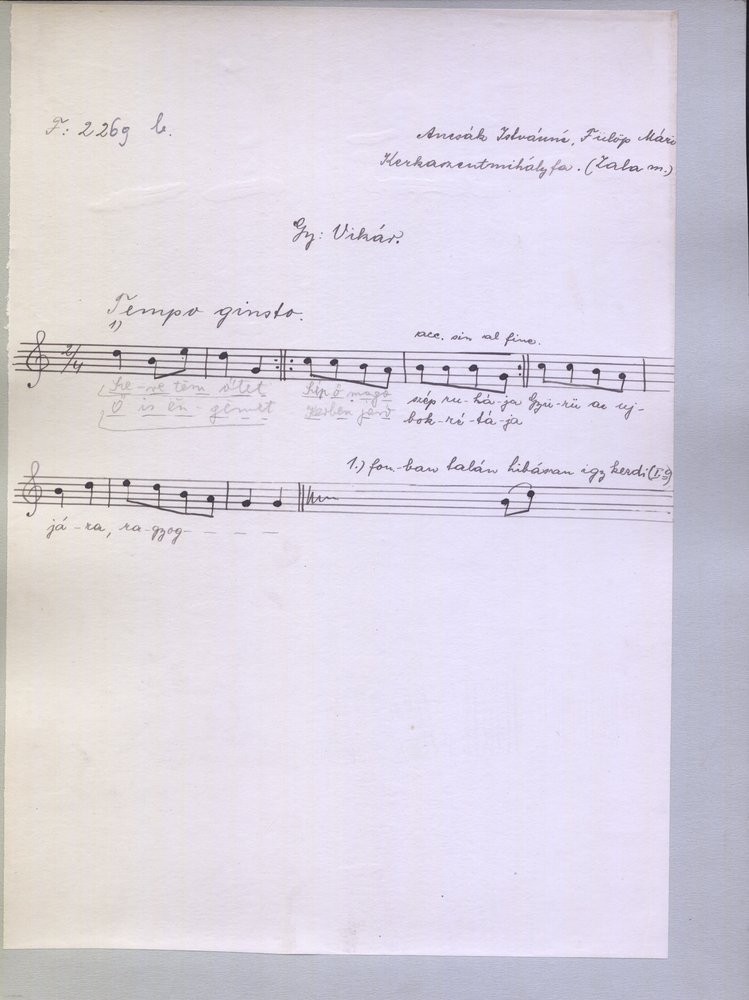 F: 2269 b.
Ancsák Istvánné, Fülöp Mári
Kerkaszentmihályfa. (Zala m.)
Gy: Vikár.
Tempo giusto.
1)
acc. sin al fine.
2/4
Sze-re-tem ötet Szép ő maga szép ru-há-ja Gyü-rü az uj-
Ő is en-gemet bok-ré-tá-ja
1.) fon-ban talán hibásan igy kezdi
já-ra, ra-gyog- - - -